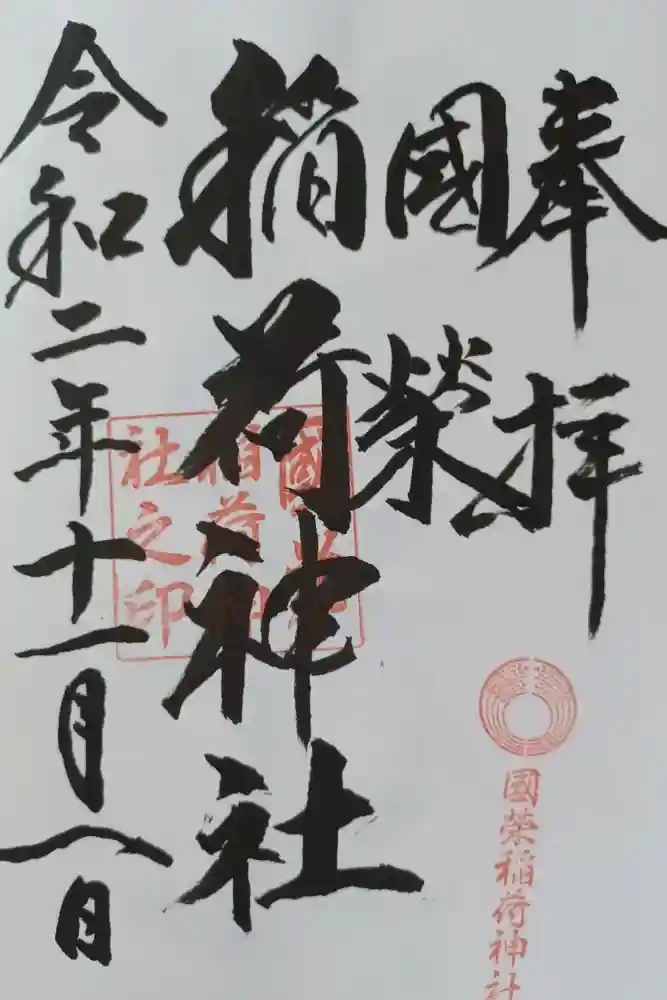 奉拝
國榮
稲荷神社
令和二年十一月八日
國榮稲荷神社之印
國榮稲荷神社